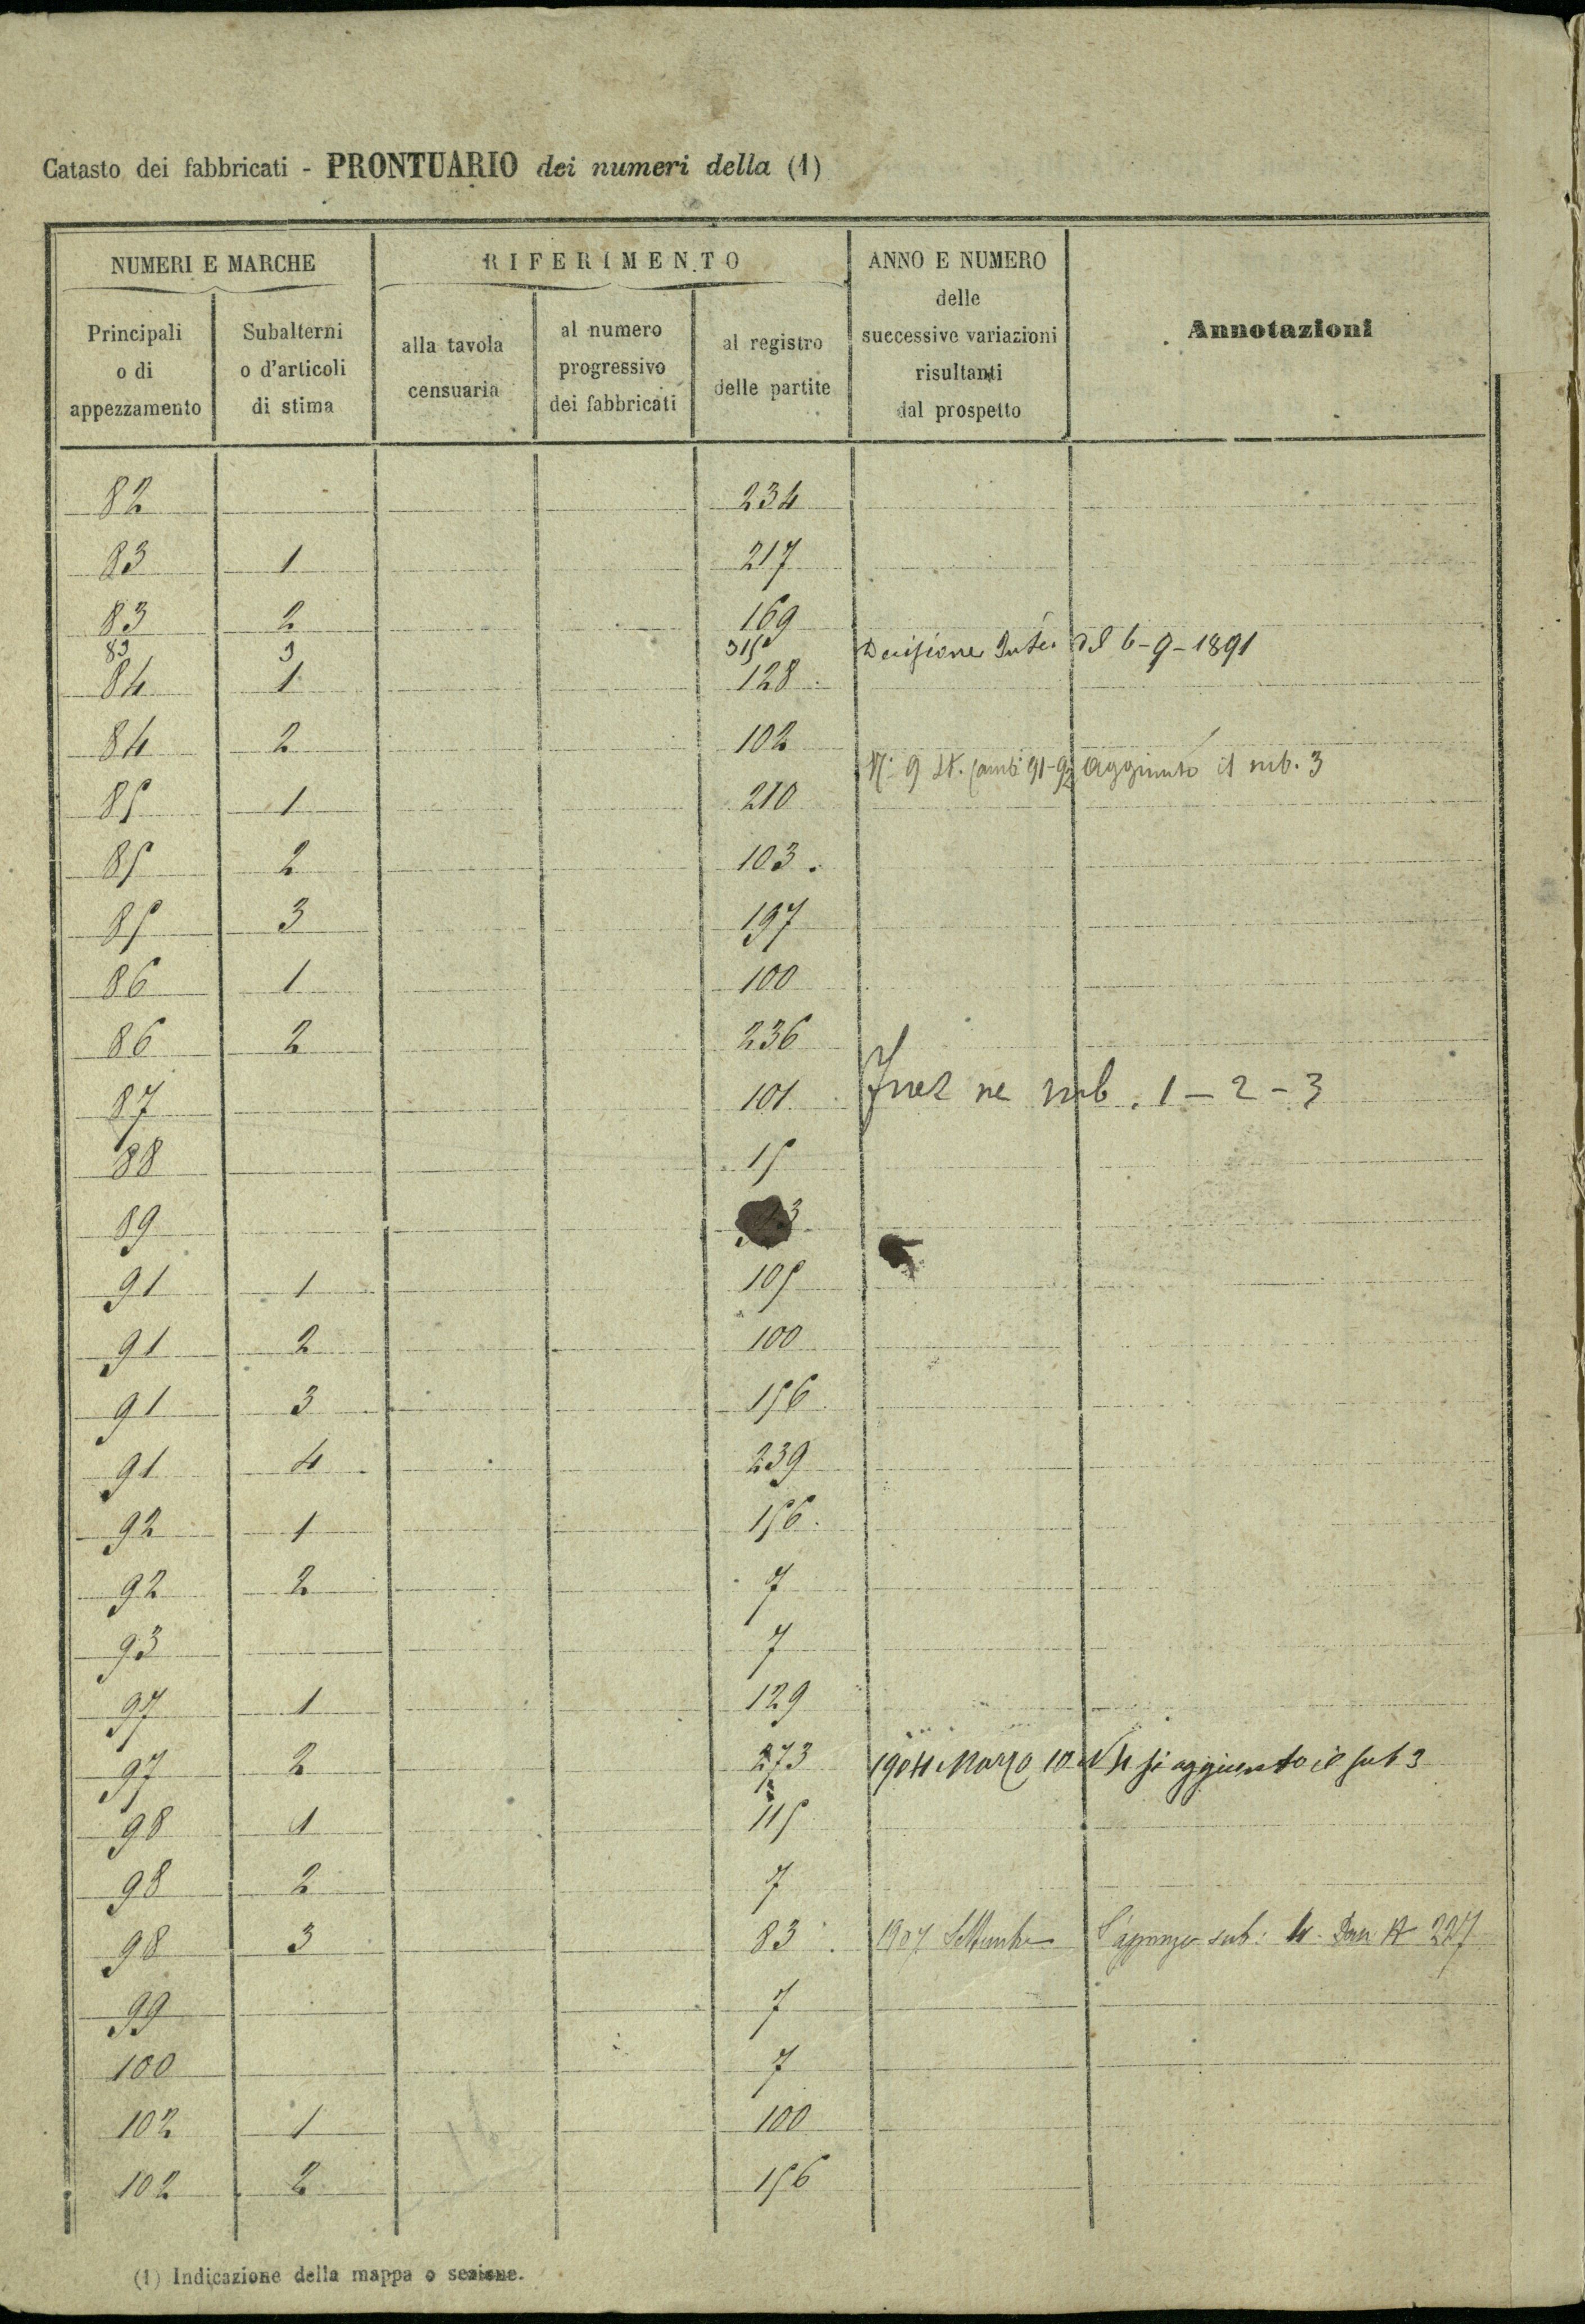 Catasto dei fabbricati - PRONTUARIO dei numeri della (1)
NUMERI E MARCHE
RIFERIMENTO
ANNO E NUMERO
delle
successive variazioni
risultanti
dal prospetto
Annotazioni
Principali
o di
appezzamento
Subalterni
o d'articoli
di stima
alla tavola
censuaria
al numero
progressivo
dei fabbricati
al registro
delle partite
82 234
83 1 217
83 2 169
83 3 315 Decisione del 6-9-1891
84 1 128
84 2 102
N. 9 91-92 aggiunto il sub. 3
85 1 210
85 2 103.
85 3 197
86 1 100
86 2 236
87 101 ne sub. 1-2-3
88 15
89
91 1 105
91 2 100
91 3 156
91 4 239
92 1 156.
92 2 7
93 7
97 1 129
97 2 273 1904 Marzo 10 N 4 si aggiunto il sub 3
98 1 115
98 2 7
98 3 83 1907 Settembre sub: 4. 227
99 7
100 7
102 1 100
102 2 156
(1) Indicazione della mappa o sezione.